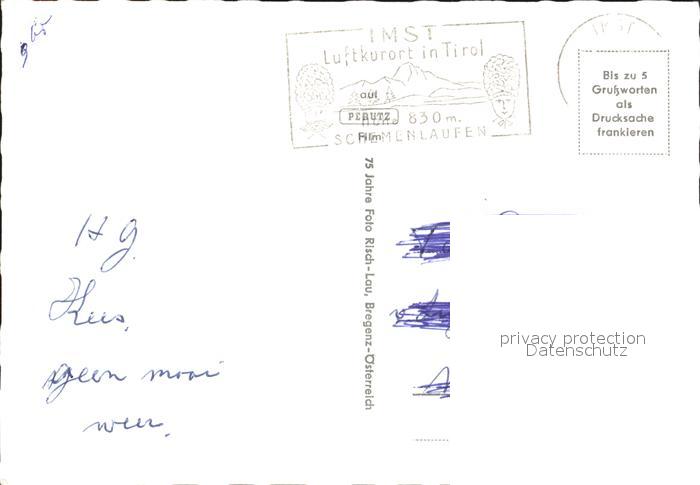 IMST
Luftkurort in Tirol
auf
PERUTZ
Film
Höhe 830 m.
SCHEMENLAUFEN
IMST
Bis zu 5
Grußworten
als
Drucksache
frankieren
75 Jahre Foto Risch-Lau, Bregenz-Österreich
H g.
Kees.
geen mooi
weer.
privacy protection
Datenschutz